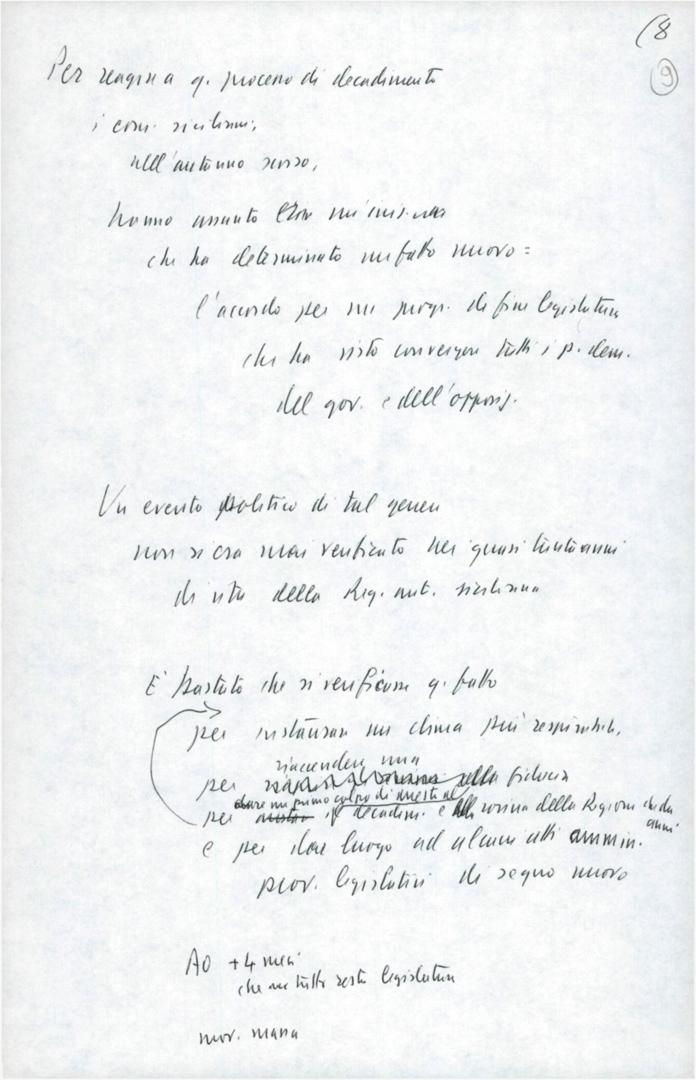 (8
9
Per reagire a q. processo di decadimento
i com. siciliani,
nell'autunno scorso,
hanno assunto
che ha determinato un fatto nuovo:
l'accordo per un progr. di fine legislatura
che ha visto convergere tutti i p. dem.
del gov. e dell'opposiz.
Un evento politico di tal genere
non si era mai verificato nei quasi trent'anni
di vita della Reg. aut. siciliana
È bastato che si verificasse q. fatto
per instaurare un clima più respirabile,
riaccendere una
per della fiducia
dare un primo colpo di arresto al
per decadim. e alla rovina della Regione che da
anni
e per dar luogo ad alcuni atti ammin.
prov. legislativi di segno nuovo
AO +4 mesi
che in tutto resto legislatura
mov. massa